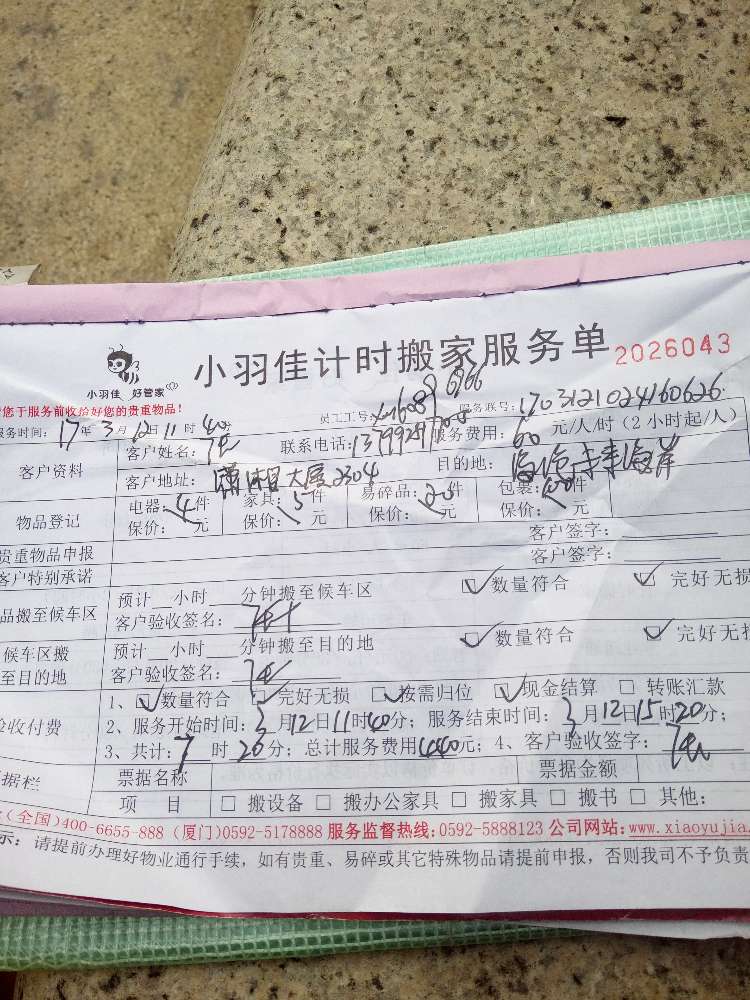 小羽佳计时搬家服务单 2026043
小羽佳 好管家
您于服务前收给好您的贵重物品!
员工工号: 服务联号: 1703121024160626
服务时间: 17年3月12日11时40分
客户姓名: 联系电话: 服务费用: 60元/人/时(2小时起/人)
客户资料
客户地址: 大厦2304 目的地: 海岸
物品登记
电器: 4件 家具: 5件 易碎品: 件 包装: 件
保价: 元 保价: 元 保价: 元 保价: 元
贵重物品申报 客户签字:
客户特别承诺 客户签字:
品搬至候车区
预计 小时 分钟搬至候车区 ☑数量符合 ☑完好无损
客户验收签名:
候车区搬至目的地
预计 小时 分钟搬至目的地 ☑数量符合 ☑完好无
客户验收签名:
验收付费
1、☑数量符合 ☑完好无损 ☑按需归位 ☑现金结算 □转账汇款
2、服务开始时间: 3月12日11时40分; 服务结束时间: 3月12日15时20分;
3、共计: 7时20分; 总计服务费用1440元; 4、客户验收签字:
据栏
票据名称 票据金额
项 目 □搬设备 □搬办公家具 □搬家具 □搬书 □其他:
(全国)400-6655-888 (厦门)0592-5178888 服务监督热线:0592-5888123 公司网站:www.xiaoyujia
示: 请提前办理好物业通行手续,如有贵重、易碎或其它特殊物品请提前申报,否则我司不予负责